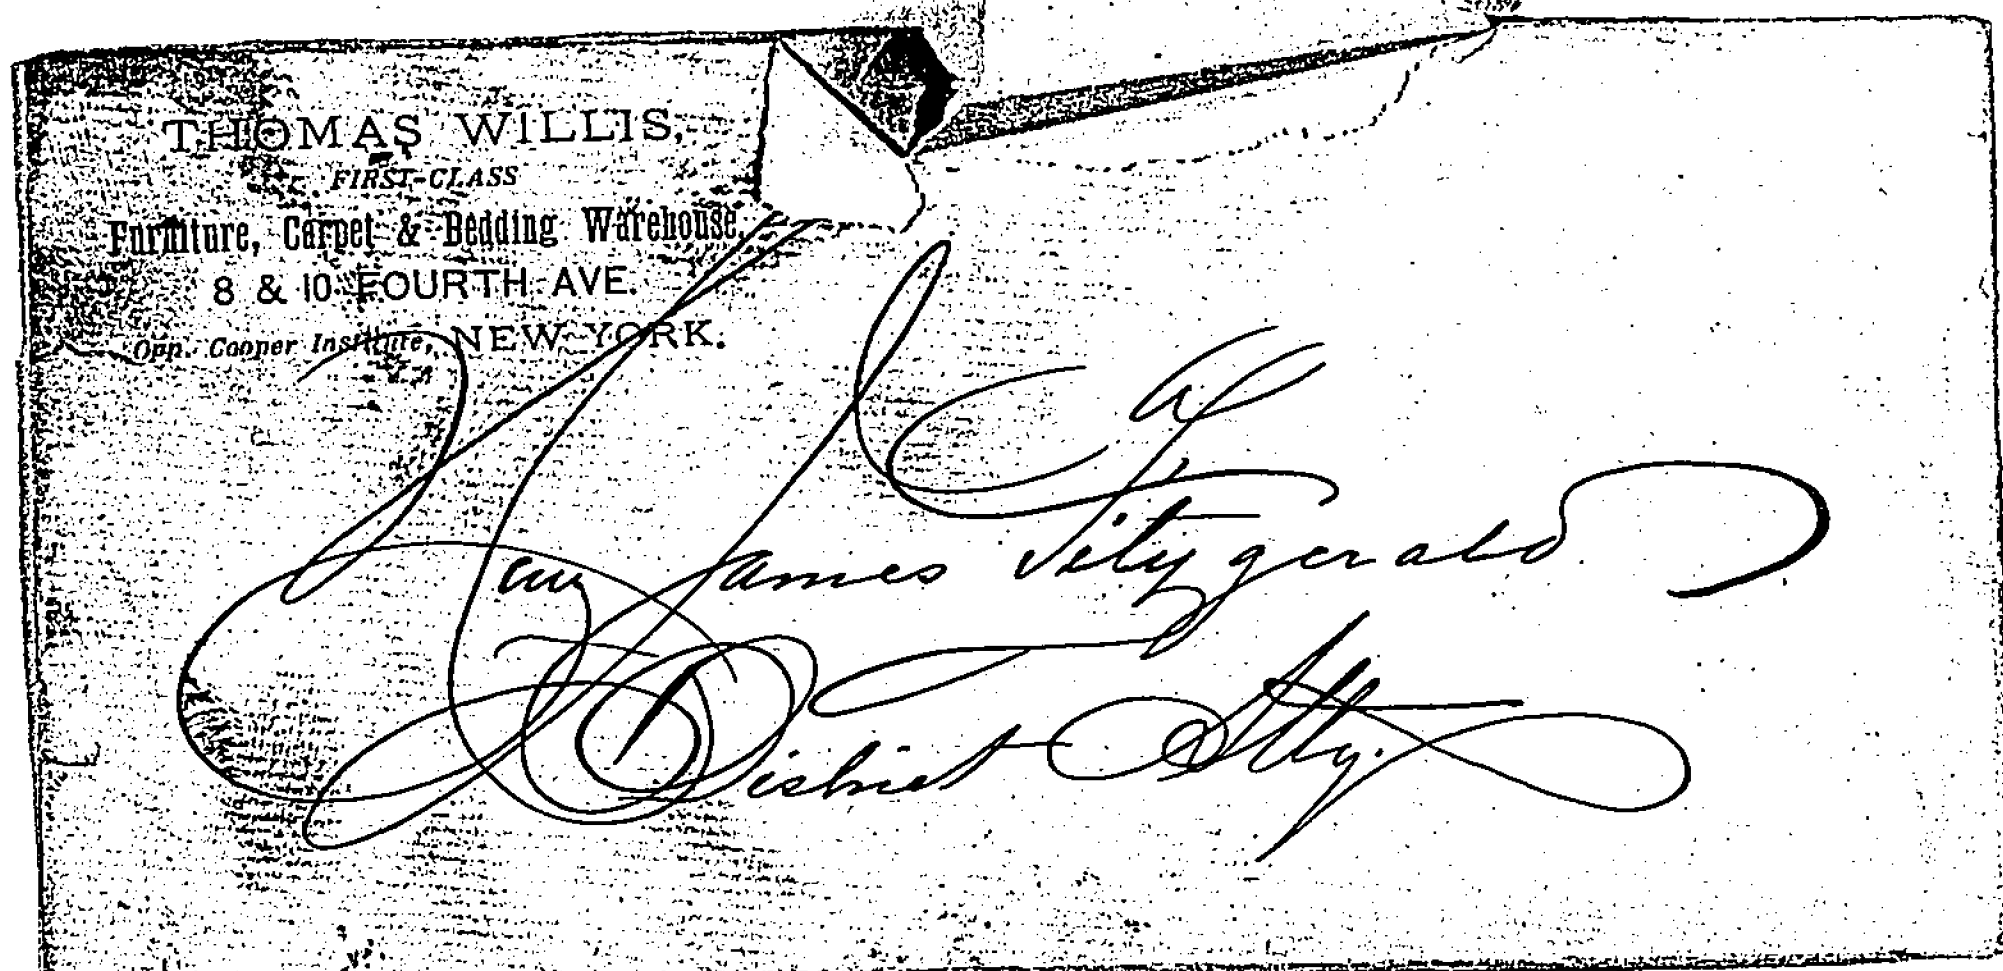 THOMAS WILLIS,
FIRST-CLASS
Furniture, Carpet & Bedding Warehouse,
8 & 10 FOURTH AVE.
Opp. Cooper Institute, NEW YORK.
Hon James Fitzgerald
District Atty.